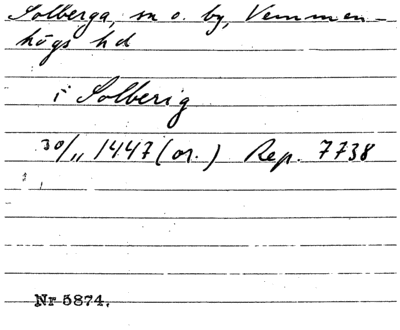 Solberga, sn o. by, Vemmen-
högs hd
i Solberig
30/11 1447 (or.) Rep. 7738
Nr 5874.